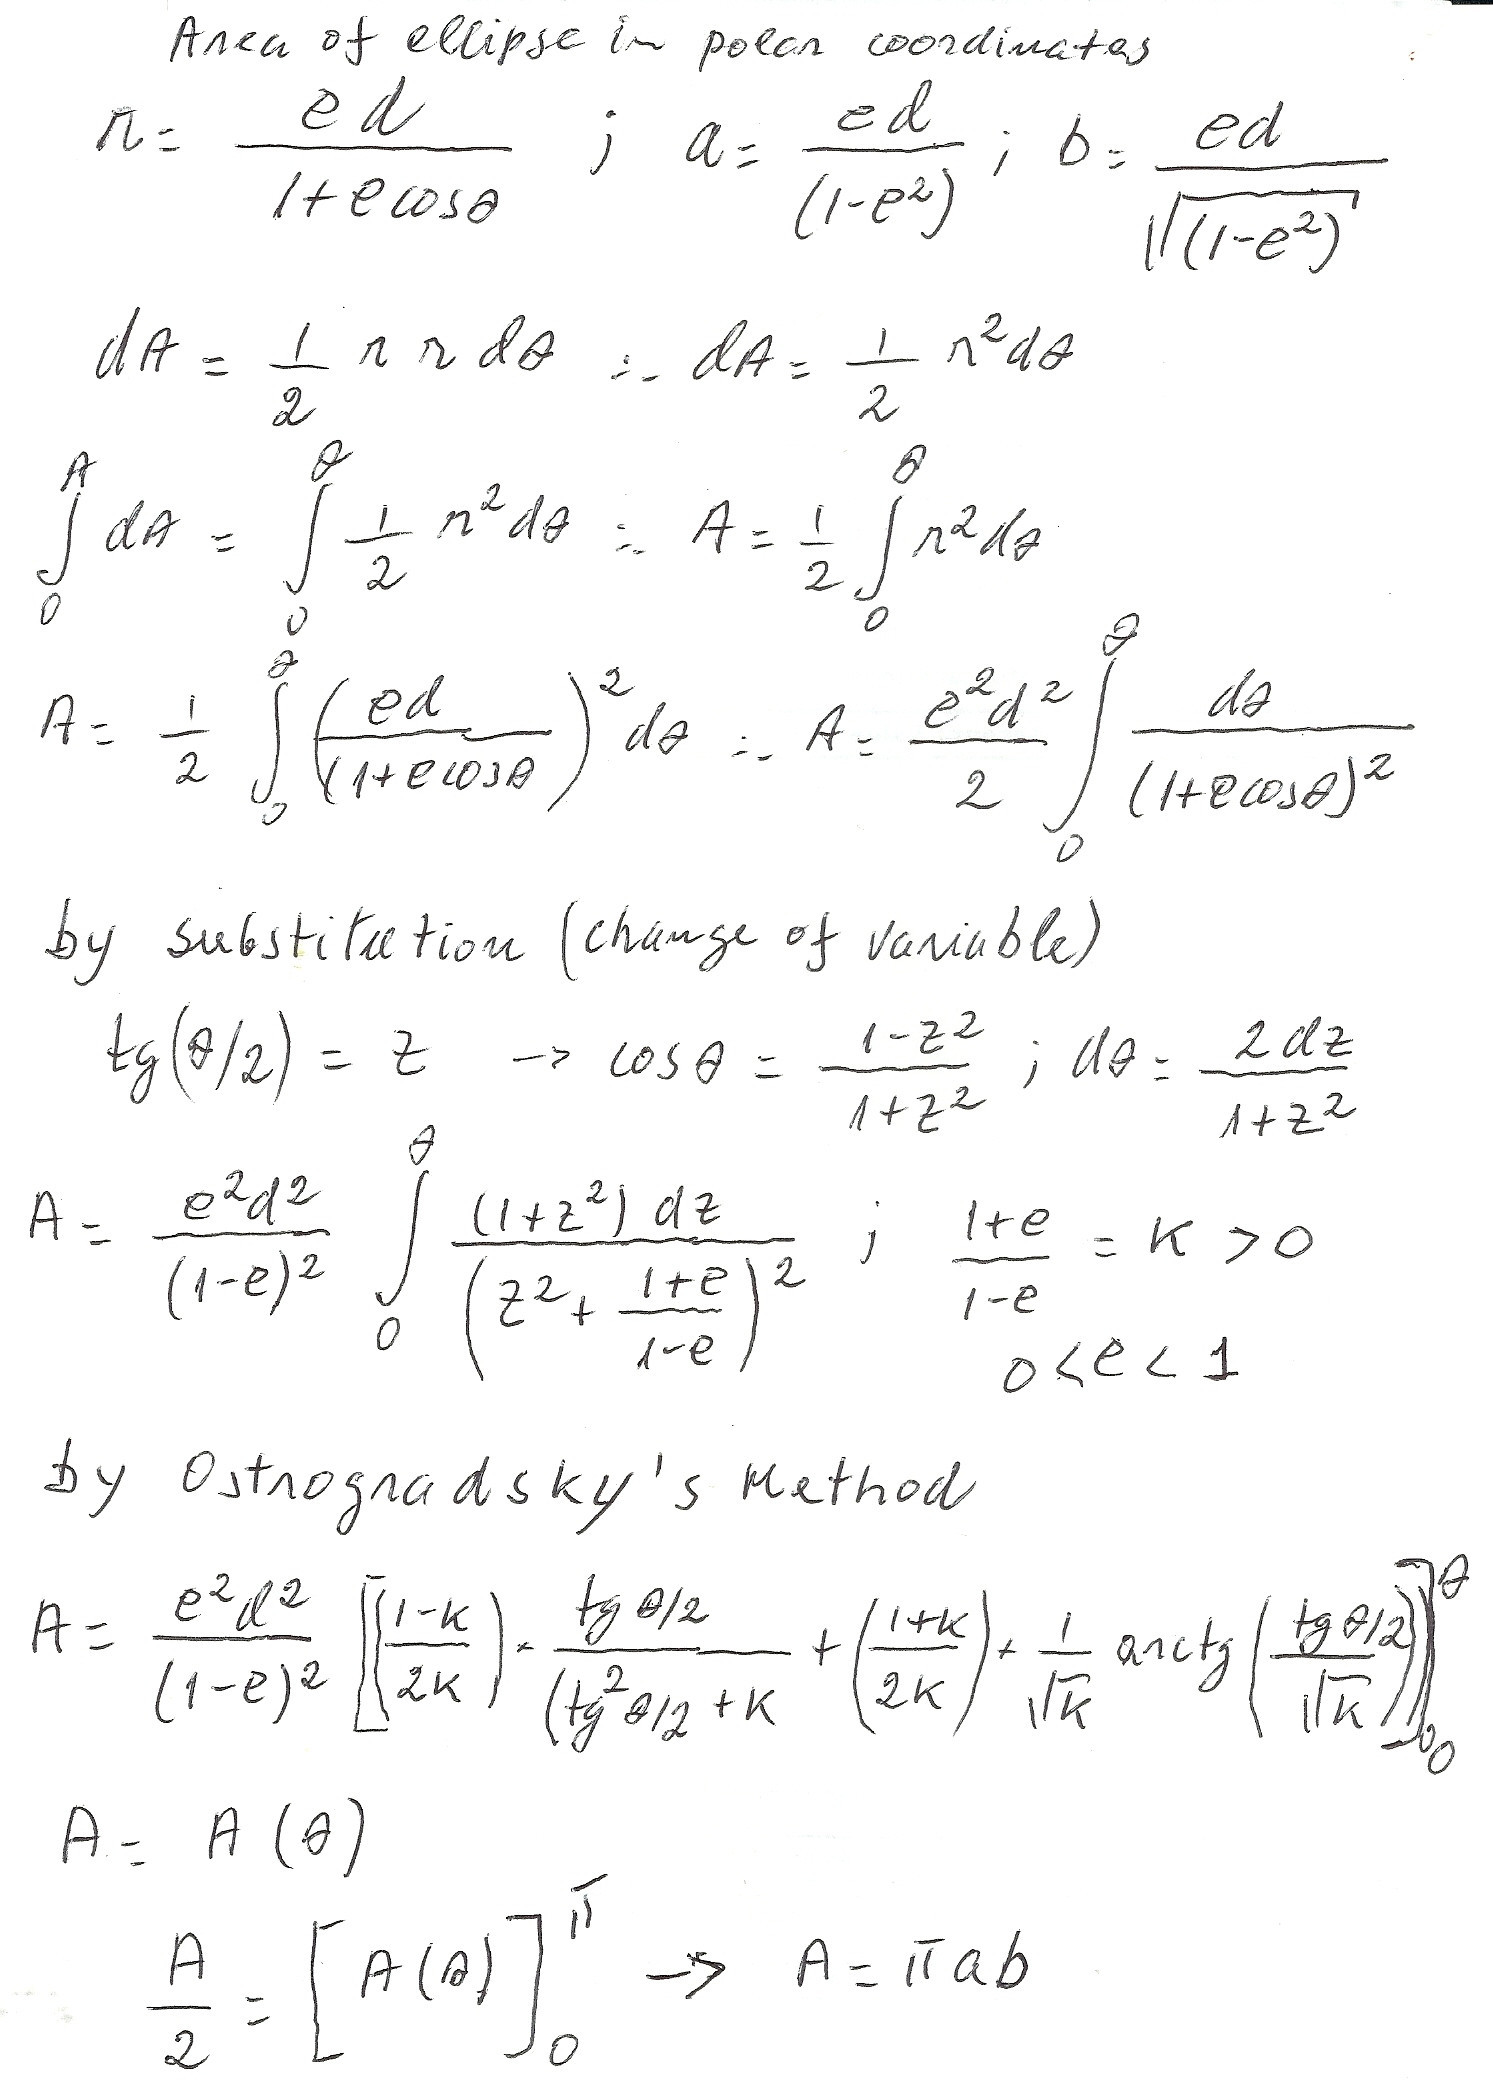 Area of ellipse in polar coordinates
r = ed / (1+e cosθ) ; a = ed / (1-e²) ; b = ed / √(1-e²)
dA = 1/2 r r dθ ∴ dA = 1/2 r² dθ
∫₀^A dA = ∫₀^θ 1/2 r² dθ ∴ A = 1/2 ∫₀^θ r² dθ
A = 1/2 ∫₀^θ (ed / (1+e cosθ)² dθ ∴ A = e²d²/2 ∫₀^θ dθ / (1+e cosθ)²
by substitution (change of variable)
tg(θ/2) = z → cosθ = (1-z²)/(1+z²) ; dθ = 2dz/(1+z²)
A = e²d²/(1-e)² ∫₀^θ (1+z²) dz / (z² + (1+e)/(1-e))² ; (1+e)/(1-e) = K > 0
0 < e < 1
by Ostrogradsky's Method
A = e²d²/(1-e)² [((1-K)/2K) · tg θ/2 / (tg² θ/2 + K + ((1+K)/2K) · 1/√K arctg (tg θ/2 / √K))]₀^θ
A = A(θ)
A/2 = [A(θ)]₀^π → A = π a b